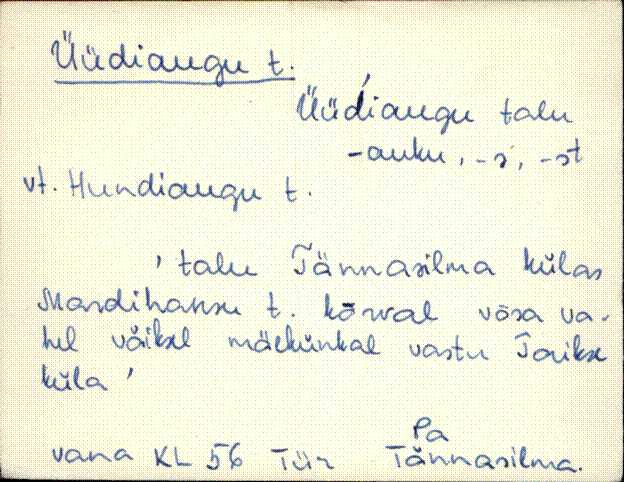 Üüdiaugu t.
Üüd́iaugu talu
-auku, -s, -st
vt. Hundiaugu t.
'talu Tännasilma külas
Mardihansu t. kõrval võsa va-
hel väiksel mäekünkal vastu Taikse
küla'
Pa
vana KL 56 Tür Tännasilma.